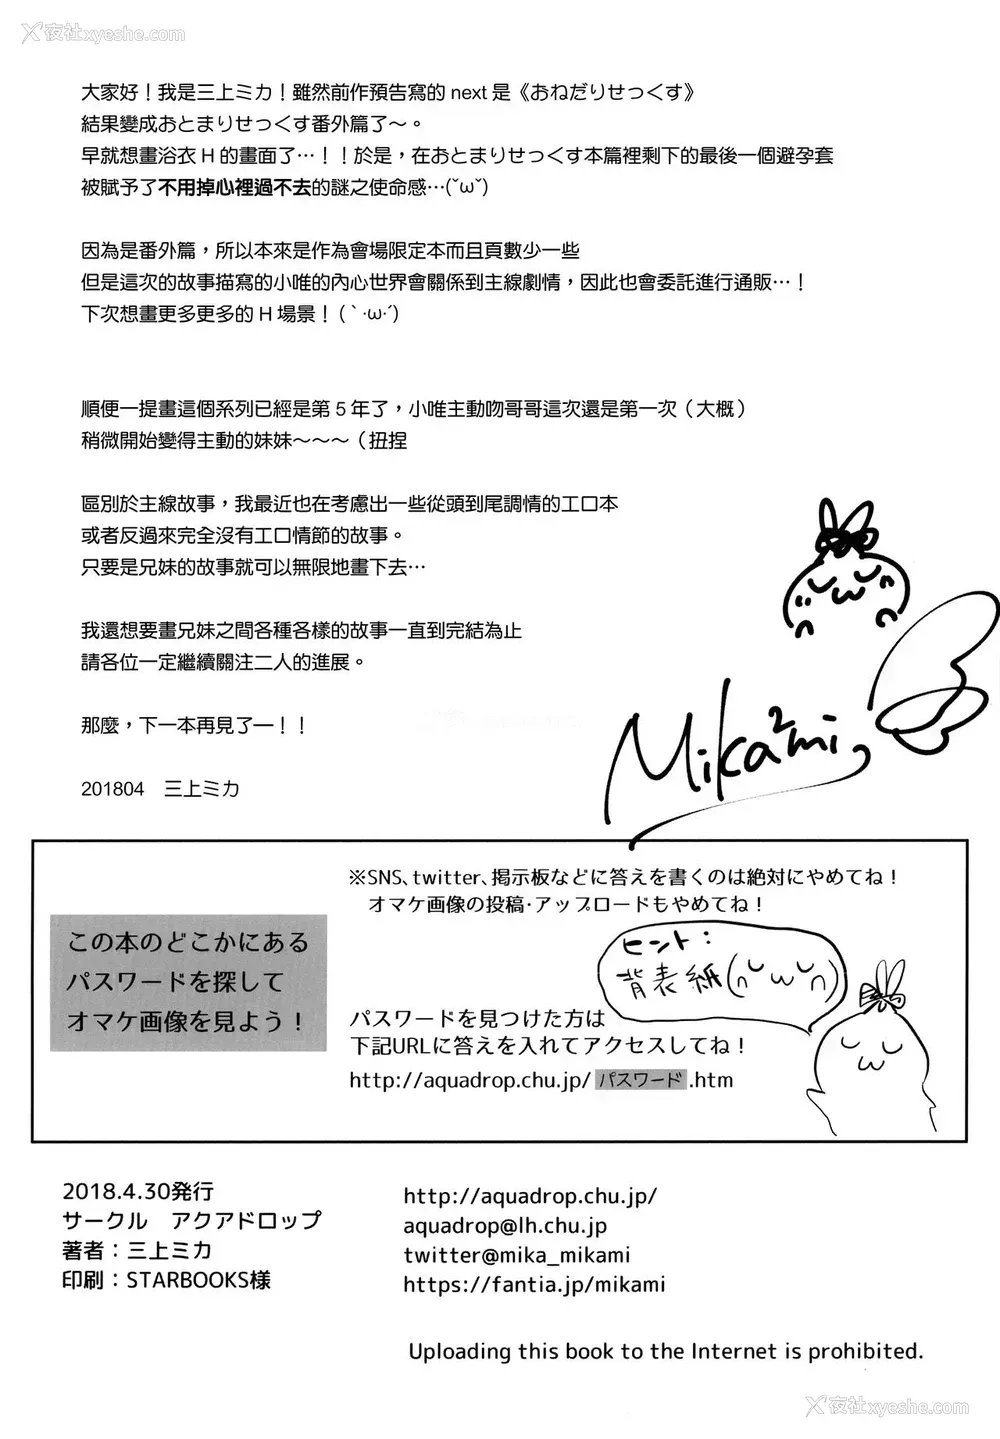 夜社xyeshe.com
大家好！我是三上ミカ！雖然前作預告寫的 next 是《おねだりせっくす》
結果變成おとまりせっくす番外篇了～。
早就想畫浴衣 H 的畫面了…！！於是，在おとまりせっくす本篇裡剩下的最後一個避孕套
被賦予了不用掉心裡過不去的謎之使命感…(˘ω˘)
因為是番外篇，所以本來是作為會場限定本而且頁數少一些
但是這次的故事描寫的小唯的內心世界會關係到主線劇情，因此也會委託進行通販…！
下次想畫更多更多的 H 場景！(｀·ω·´)
順便一提畫這個系列已經是第 5 年了，小唯主動吻哥哥這次還是第一次（大概）
稍微開始變得主動的妹妹～～～（扭捏
區別於主線故事，我最近也在考慮出一些從頭到尾調情的工口本
或者反過來完全沒有工口情節的故事。
只要是兄妹的故事就可以無限地畫下去…
我還想要畫兄妹之間各種各樣的故事一直到完結為止
請各位一定繼續關注二人的進展。
那麼，下一本再見了ー！！
201804　三上ミカ
Mika2mi
※SNS、twitter、掲示板などに答えを書くのは絶対にやめてね！
オマケ画像の投稿・アップロードもやめてね！
この本のどこかにある
パスワードを探して
オマケ画像を見よう！
ヒント：
背表紙
パスワードを見つけた方は
下記URLに答えを入れてアクセスしてね！
http://aquadrop.chu.jp/パスワード.htm
2018.4.30発行
サークル　アクアドロップ
著者：三上ミカ
印刷：STARBOOKS様
http://aquadrop.chu.jp/
aquadrop@lh.chu.jp
twitter@mika_mikami
https://fantia.jp/mikami
Uploading this book to the Internet is prohibited.
夜社xyeshe.com